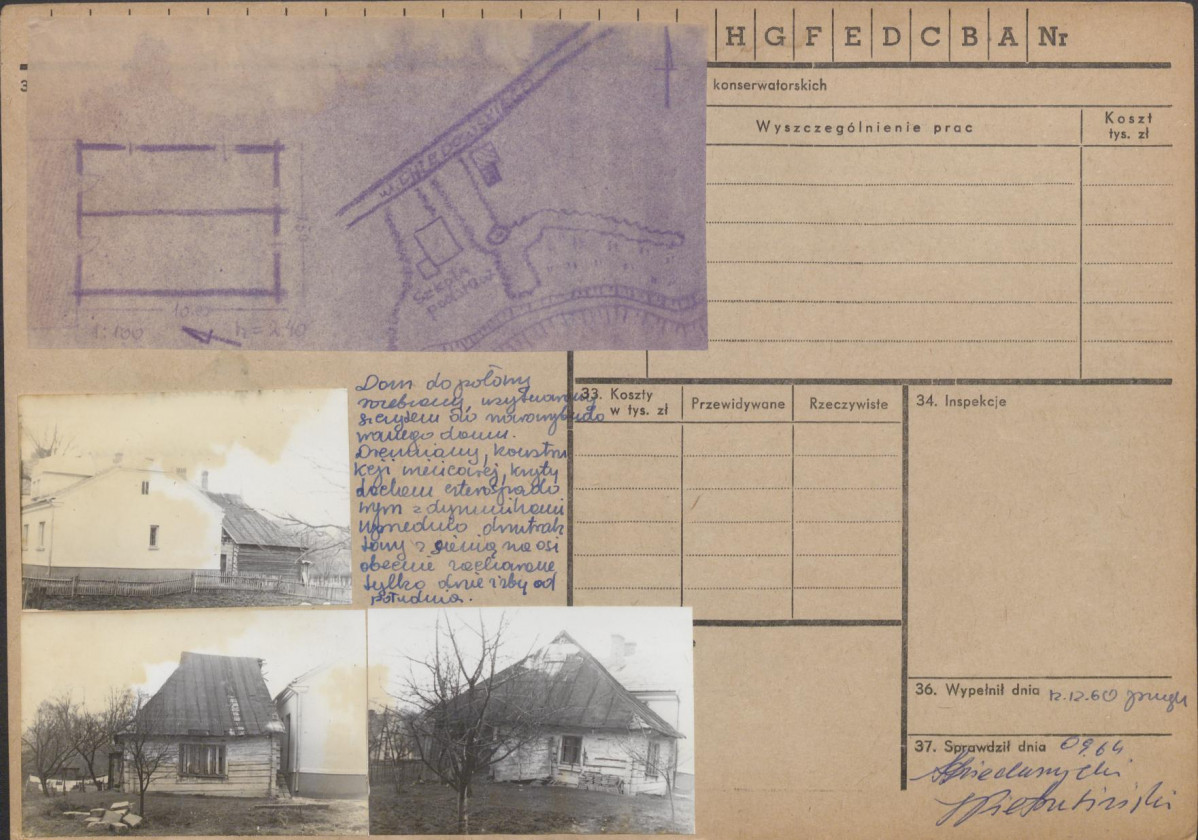 H G F E D C B A Nr
3
konserwatorskich
Wyszczególnienie prac
Koszt
tys. zł
1:100
h=2.40
Szkoła
Dom do połowy
rozebrany, użytkowany
szczytem do nowowybudo
wanego domu.
Drewniany, konstru
kcji wieńcowej, kryty
dachem czterospado
wym z dymnikami
dwutrak
towy z sienią na osi
obecnie zachowane
tylko dwie izby od
południa.
33. Koszty
w tys. zł
Przewidywane
Rzeczywiste
34. Inspekcje
36. Wypełnił dnia 12.12.60
37. Sprawdził dnia 09.64